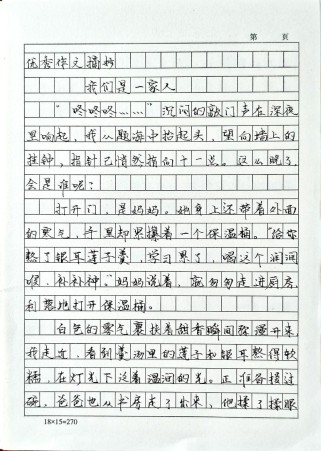 第 页
优秀作文摘抄
我们是一家人
"咚咚咚……"沉闷的敲门声在深夜
里响起，我从题海中抬起头，望向墙上的
挂钟，指针已悄然指向十一点。这么晚了，
会是谁呢？
打开门，是妈妈。她身上还带着外面
的寒气，手里却紧攥着一个保温桶。"给你
熬了银耳莲子羹，学习累了，喝这个润润
喉，补补神。"妈妈说着，匆匆走进厨房，
利落地打开保温桶。
白色的雾气裹挟着甜香瞬间弥漫开来，
我走近，看到羹汤里的莲子和银耳熬得软
糯，在灯光下泛着温润的光。正准备接过
碗，爸爸也从书房走了出来，他揉了揉眼
18×15=270